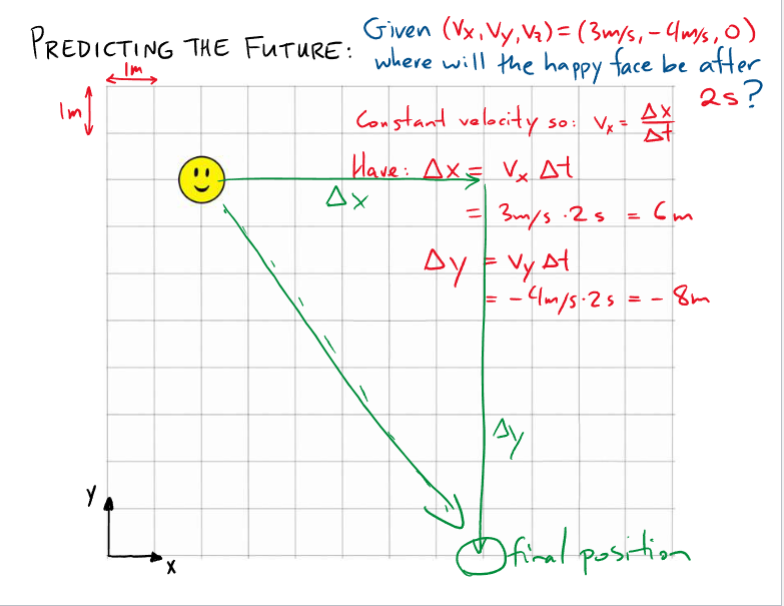 PREDICTING THE FUTURE:
Given (Vx, Vy, Vz) = (3m/s, -4m/s, 0)
where will the happy face be after
2s?
1m
1m
Constant velocity so: Vx = Δx/Δt
Have: Δx = Vx Δt
Δx
= 3m/s · 2s = 6m
Δy = Vy Δt
= -4m/s · 2s = -8m
Δy
Y
X
final position